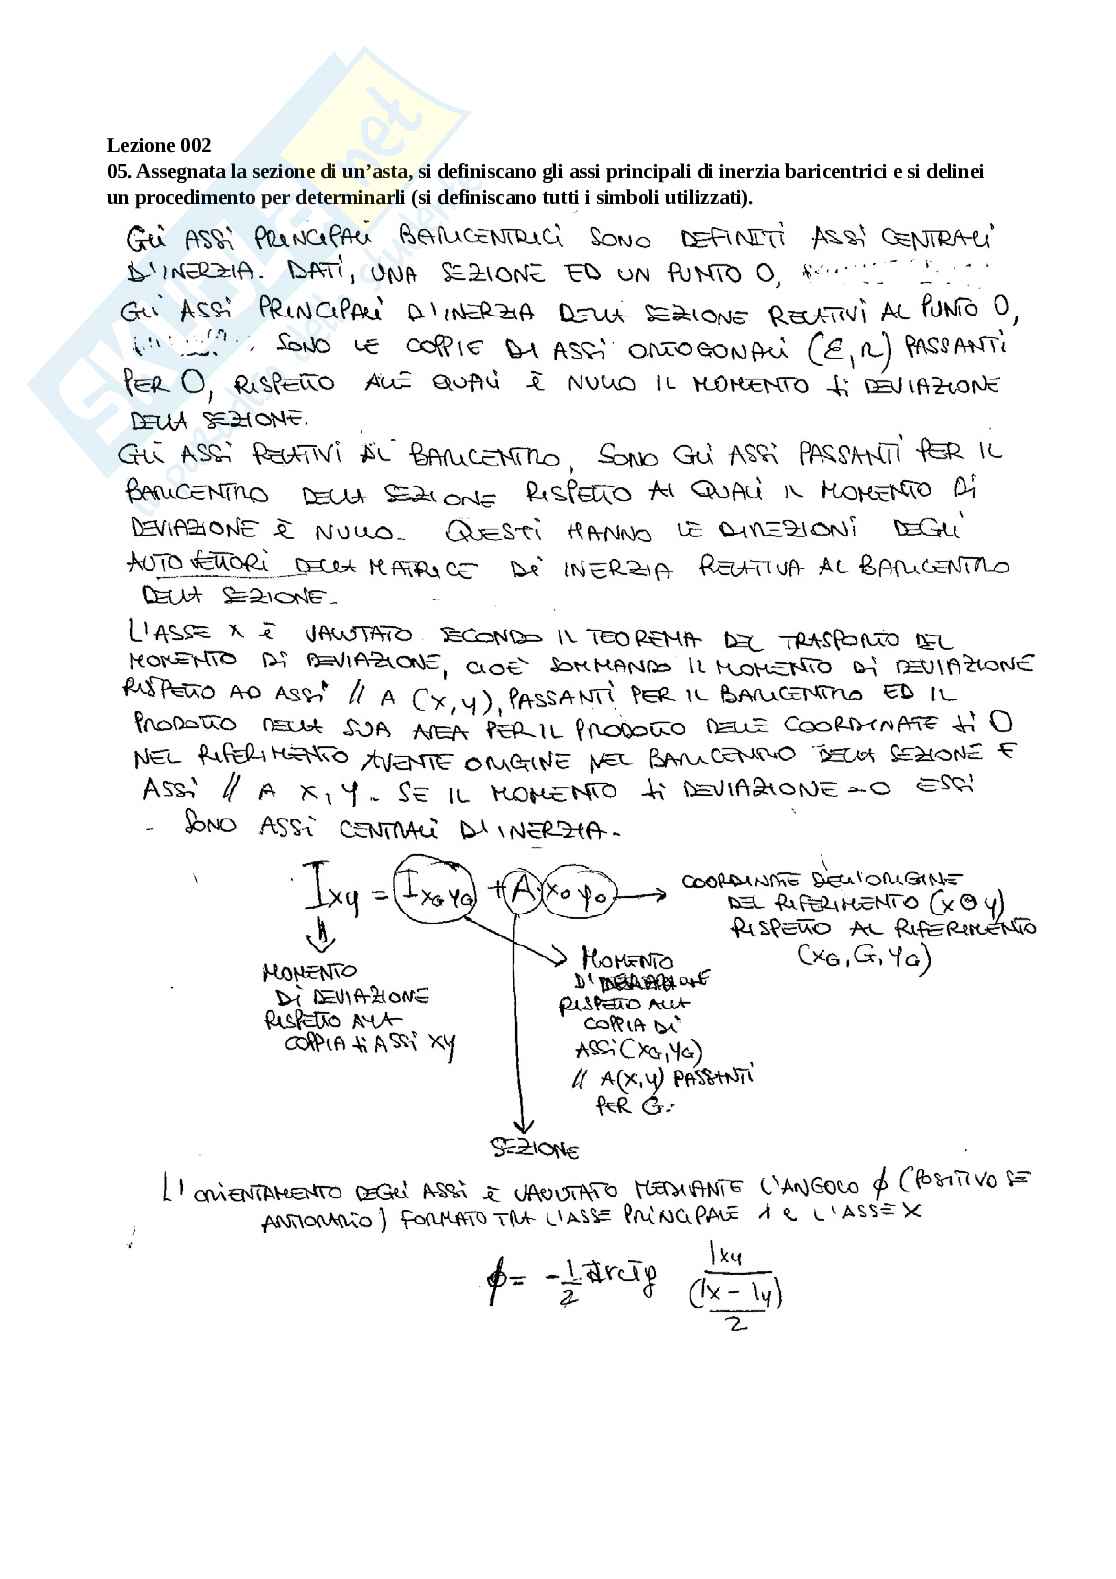 Lezione 002
05. Assegnata la sezione di un'asta, si definiscano gli assi principali di inerzia baricentrici e si delinei
un procedimento per determinarli (si definiscano tutti i simboli utilizzati).
GLI ASSI PRINCIPALI BARICENTRICI SONO DEFINITI ASSI CENTRALI
D'INERZIA. DATI, UNA SEZIONE ED UN PUNTO O,
GLI ASSI PRINCIPALI D'INERZIA DELLA SEZIONE RELATIVI AL PUNTO O,
SONO LE COPPIE DI ASSI ORTOGONALI (ξ, η) PASSANTI
PER O, RISPETTO ALLE QUALI È NULLO IL MOMENTO DI DEVIAZIONE
DELLA SEZIONE.
GLI ASSI RELATIVI AL BARICENTRO, SONO GLI ASSI PASSANTI PER IL
BARICENTRO DELLA SEZIONE RISPETTO AI QUALI IL MOMENTO DI
DEVIAZIONE È NULLO. QUESTI HANNO LE DIREZIONI DEGLI
AUTOVETTORI DELLA MATRICE DI INERZIA RELATIVA AL BARICENTRO
DELLA SEZIONE.
L'ASSE X È VALUTATO SECONDO IL TEOREMA DEL TRASPORTO DEL
MOMENTO DI DEVIAZIONE, CIOÈ SOMMANDO IL MOMENTO DI DEVIAZIONE
RISPETTO AD ASSI // A (X, Y), PASSANTI PER IL BARICENTRO ED IL
PRODOTTO DELLA SUA AREA PER IL PRODOTTO DELLE COORDINATE DI O
NEL RIFERIMENTO AVENTE ORIGINE NEL BARICENTRO DELLA SEZIONE E
ASSI // A X, Y. SE IL MOMENTO DI DEVIAZIONE = 0 ESSI
SONO ASSI CENTRALI D'INERZIA.
Ixy = IxGyG + A·x0y0
COORDINATE DELL'ORIGINE
DEL RIFERIMENTO (XOY)
RISPETTO AL RIFERIMENTO
(XG, G, YG)
MOMENTO
DI DEVIAZIONE
RISPETTO ALLA
COPPIA DI ASSI XY
MOMENTO
RISPETTO ALLA
COPPIA DI
ASSI (XG, YG)
// A (X, Y) PASSANTI
PER G.
SEZIONE
L'ORIENTAMENTO DEGLI ASSI È VALUTATO MEDIANTE L'ANGOLO ϕ (POSITIVO SE
ANTIORARIO) FORMATO TRA L'ASSE PRINCIPALE 1 E L'ASSE X
ϕ = -1/2 arctg Ixy / ((Ix - Iy)/2)